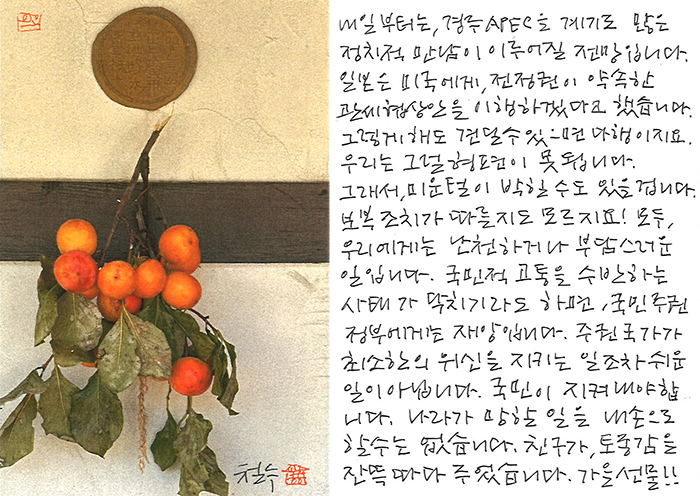 내일부터는, 경주APEC을 계기로 많은
정치적 만남이 이루어질 전망입니다.
일본은 미국에게, 전정권이 약속한
관세협상안을 이행하겠다고 했습니다.
그렇게해도 견딜수있으면 다행이지요.
우리는 그럴형편이 못됩니다.
그래서, 미운털이 박힐수도 있을겁니다.
보복조치가 따를지도 모르지요! 모두,
우리에게는 난처하거나 부담스러운
일입니다. 국민적 고통을 수반하는
사태가 닥치기라도 하면, 국민주권
정부에게는 재앙입니다. 주권국가가
최소한의 위신을 지키는 일조차쉬운
일이아닙니다. 국민이 지켜내야합
니다. 나라가 망할 일을 내손으로
할수는 없습니다. 친구가, 토종감을
잔뜩따다 주었습니다. 가을선물!!
철수